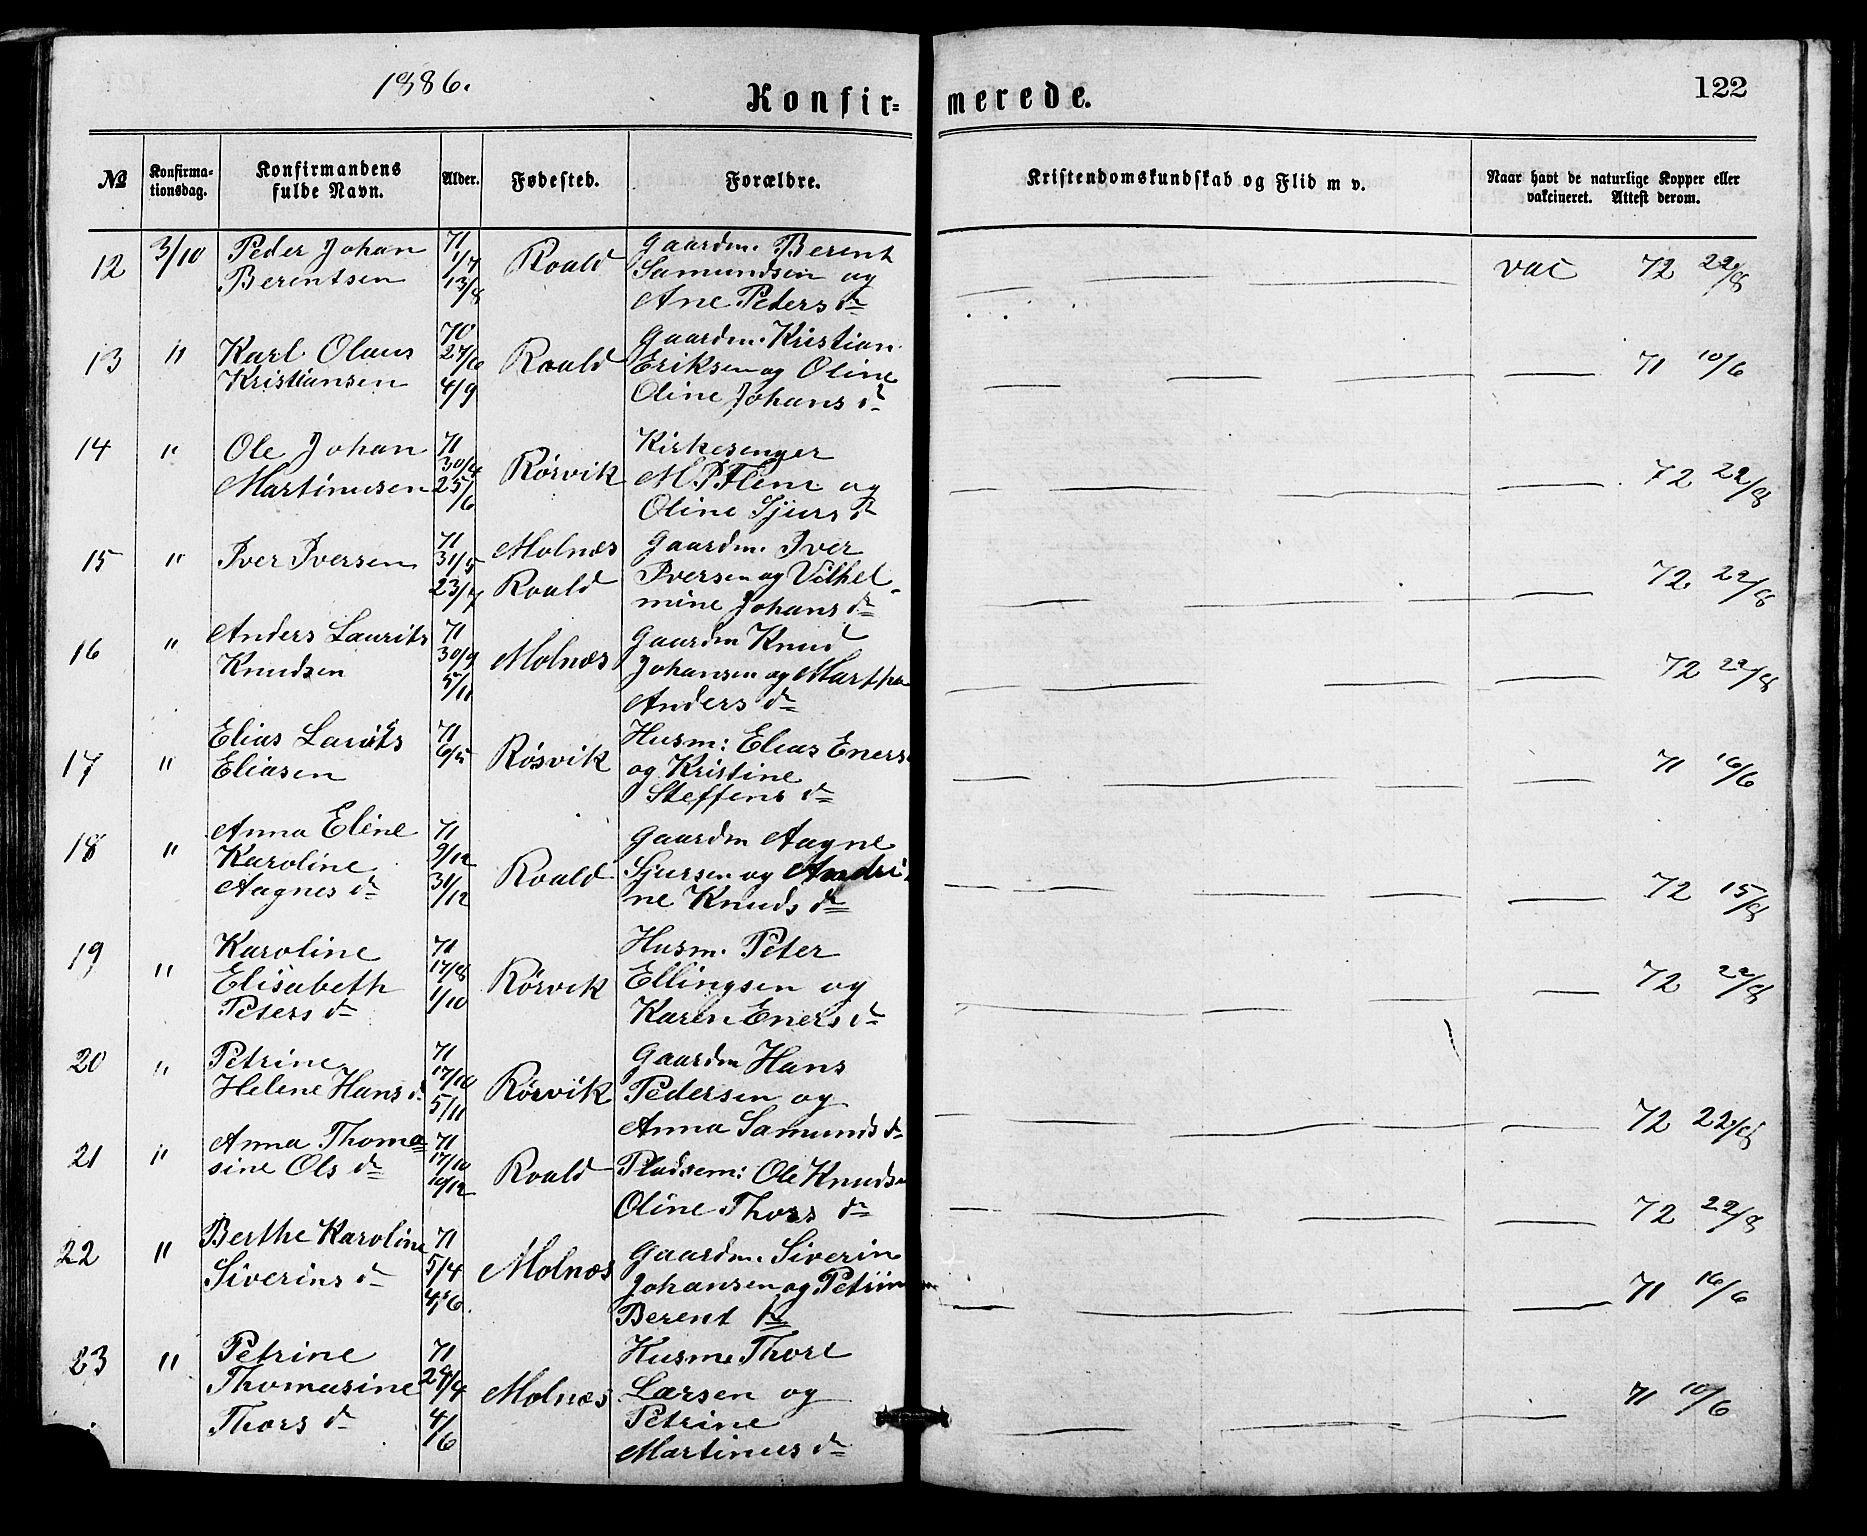 1886.
Konfirmerede.
122
No
Konfirmationsdag.
Konfirmandens fulde Navn.
Alder.
Fødested.
Forældre.
Kristendomskundskab og Flid m v.
Naar havt de naturlige Kopper eller vakcineret. Attest derom.
12 3/10 Peder Johan 71 Roald Gaardm. Berent vac 72 22/8
Berentsen 1/7 Samundsen og
13/8 Ane Peters dr
13 " Karl Olaus 70 Roald Gaardm. Kristian — 71 10/6
Kristiansen 27/6 Eriksen og Oline
4/9 Oline Johans dr
14 " Ole Johan 71 Rörvik Kirkesenger — 72 22/8
Martinusen 30/4 M. P. Flem og
25/6 Oline Sjurs dr
15 " Iver Iversen 71 Molnæs Gaardm. Iver — 72 22/8
31/5 Roald Iversen og Vilhel-
23/7 mine Johans dr
16 " Anders Laurits 71 Molnæs Gaardm Knud — 72 22/8
Knudsen 30/9 Johansen og Martha
5/11 Anders dr
17 " Elias Larits 71 Rösvik Husm: Elias Eners. — 71 16/6
Eliasen 6/5 og Kristine
Steffens dr
18 " Anna Eline 71 Roald Gaardm Aagne — 72 15/8
Karoline 9/12 Sjursen og Andri-
Aagnes dr 31/12 ne Knuds dr
19 " Karoline 71 Rörvik Husm. Peter — 72 22/8
Elisabeth 17/8 Ellingsen og
Peters dr 1/10 Karen Eners dr
20 " Petrine 71 Rörvik Gaardm Hans — 72 22/8
Helene Hans dr 17/10 Pedersen og
5/11 Anna Samunds dr
21 " Anna Thoma- 71 Roald Pladsem: Ole Knuds — 72 22/8
sine Ols dr 17/10 Oline Thors dr
/12
22 " Berthe Karoline 71 Molnæs Gaardm. Siverin — 71 16/6
Siverins dr 5/4 Johansen og Petrin
4/6 Berent
23 " Petrine 71 Molnæs Husm. Thore — 71 10/6
Thomasine 29/4 Larsen og
Thors dr 4/6 Petrine
Martinus dr